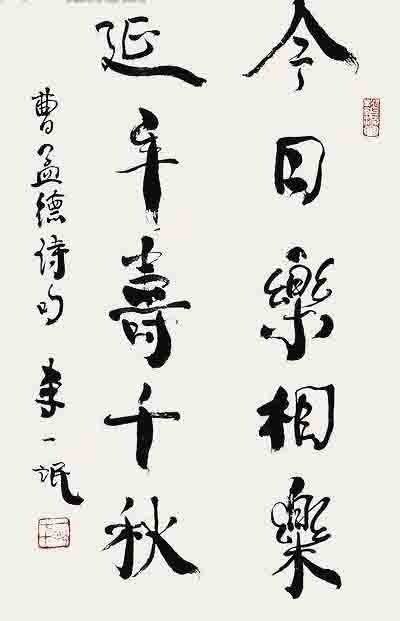 今日樂相樂
延年壽千秋
曹孟德诗句
李一氓